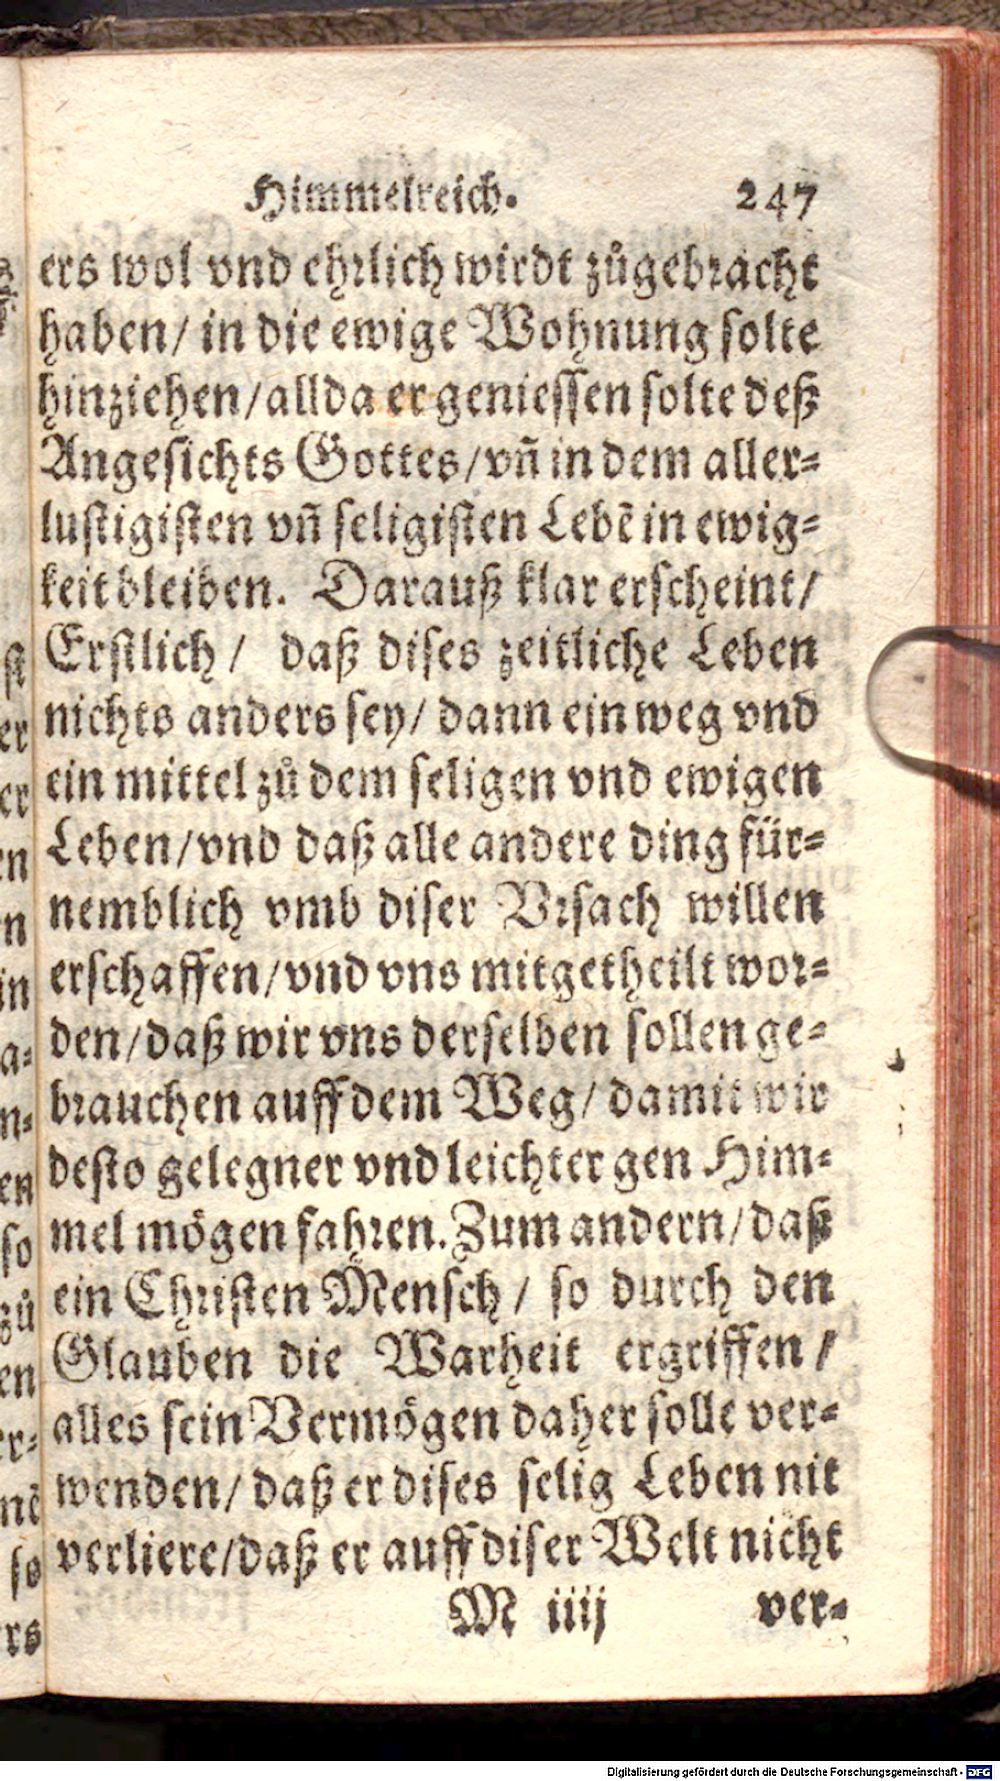 Himmelreich. 247
ers wol vnd ehrlich wirdt zůgebracht
haben/ in die ewige Wohnung solte
hinziehen/allda er geniessen solte deß
Angesichts Gottes/vñ in dem aller-
lustigisten vñ seligisten Lebẽ in ewig-
keit bleiben. Darauß klar erscheint/
Erstlich/ daß dises zeitliche Leben
nichts anders sey/ dann ein weg vnd
ein mittel zů dem seligen vnd ewigen
Leben/vnd daß alle andere ding für-
nemblich vmb diser Vrsach willen
erschaffen/vnd vns mitgetheilt wor-
den/daß wir vns derselben sollen ge-
brauchen auff dem Weg/ damit wir
desto gelegner vnd leichter gen Him-
mel mögen fahren. Zum andern/daß
ein Christen Mensch/ so durch den
Glauben die Warheit ergriffen/
alles sein Vermögen daher solle ver-
wenden/ daß er dises selig Leben nit
verliere/daß er auff diser Welt nicht
M iiij ver-
Digitalisierung gefördert durch die Deutsche Forschungsgemeinschaft - DFG